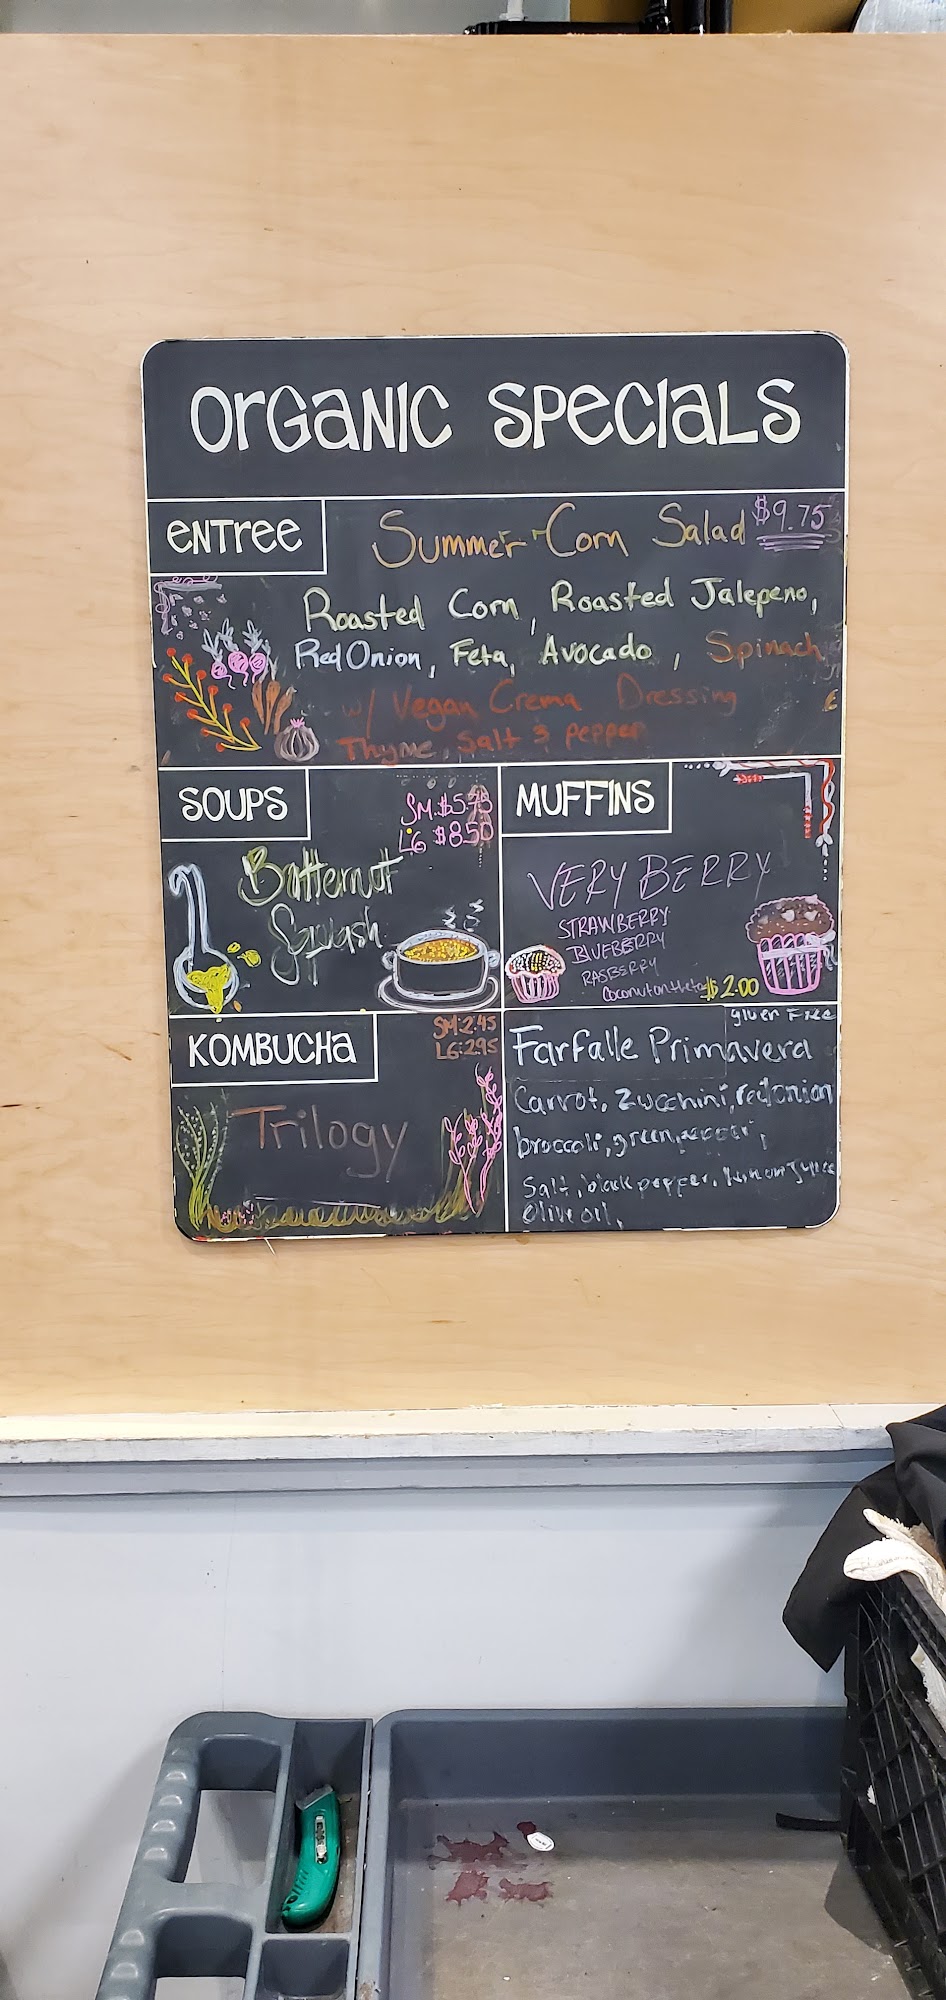 ORGANIC SPECIALS
ENTREE
Summer Corn Salad $9.75
Roasted Corn, Roasted Jalepeno,
Red Onion, Feta, Avocado, Spinach
w/ Vegan Crema Dressing
Thyme, Salt & pepper
SOUPS
SM. $5.75
LG $8.50
Butternut
Squash
MUFFINS
VERY BERRY
STRAWBERRY
BLUEBERRY
RASBERRY
Coconut on the top $2.00
KOMBUCHA
SM: 2.45
LG: 2.95
Trilogy
gluen Free
Farfalle Primavera
Carrot, Zucchini, red onion
broccoli, green pepper,
Salt, black pepper, lemon Juice
Olive oil,